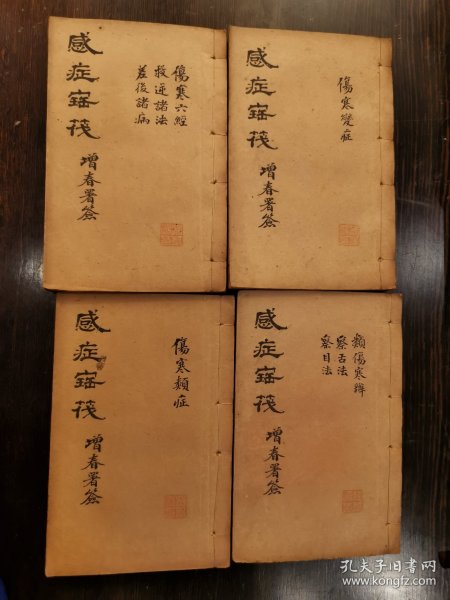 感症寶筏
增春署簽
傷寒六經
救逆諸法
差後諸病
感症寶筏
增春署簽
傷寒變症
感症寶筏
增春署簽
傷寒類症
感症寶筏
增春署簽
類傷寒辨
察舌法
察目法
孔夫子旧书网
www.kongfz.com